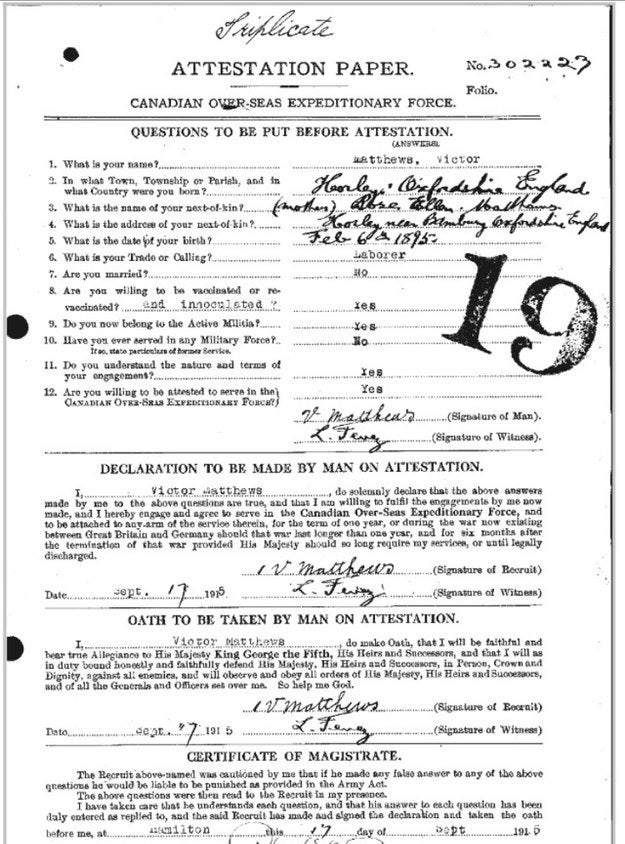 Triplicate
ATTESTATION PAPER.
No. 302227
Folio.
CANADIAN OVER-SEAS EXPEDITIONARY FORCE.
QUESTIONS TO BE PUT BEFORE ATTESTATION.
(ANSWERS).
1. What is your name? Matthews, Victor
2. In what Town, Township or Parish, and in
what Country were you born? Horley. Oxfordshire England
3. What is the name of your next-of-kin? (mother) Rose Ellen. Matthews
4. What is the address of your next-of-kin? Horley near Banbury Oxfordshire England
5. What is the date of your birth? Feb 6th 1895.
6. What is your Trade or Calling? Laborer
7. Are you married? No
8. Are you willing to be vaccinated or re-
vaccinated? and inoculated? Yes
9. Do you now belong to the Active Militia? Yes
10. Have you ever served in any Military Force? No
If so, state particulars of former Service.
11. Do you understand the nature and terms of
your engagement? Yes
12. Are you willing to be attested to serve in the
CANADIAN OVER-SEAS EXPEDITIONARY FORCE? Yes
19
V Matthews (Signature of Man).
L. (Signature of Witness).
DECLARATION TO BE MADE BY MAN ON ATTESTATION.
I, Victor Matthews, do solemnly declare that the above answers
made by me to the above questions are true, and that I am willing to fulfil the engagements by me now
made, and I hereby engage and agree to serve in the Canadian Over-Seas Expeditionary Force, and
to be attached to any arm of the service therein, for the term of one year, or during the war now existing
between Great Britain and Germany should that war last longer than one year, and for six months after
the termination of that war provided His Majesty should so long require my services, or until legally
discharged.
V Matthews (Signature of Recruit)
Date Sept. 17 1915 L. (Signature of Witness)
OATH TO BE TAKEN BY MAN ON ATTESTATION.
I, Victor Matthews, do make Oath, that I will be faithful and
bear true Allegiance to His Majesty King George the Fifth, His Heirs and Successors, and that I will as
in duty bound honestly and faithfully defend His Majesty, His Heirs and Successors, in Person, Crown and
Dignity, against all enemies, and will observe and obey all orders of His Majesty, His Heirs and Successors,
and of all the Generals and Officers set over me. So help me God.
V Matthews (Signature of Recruit)
Date Sept. 17 1915 L. (Signature of Witness)
CERTIFICATE OF MAGISTRATE.
The Recruit above-named was cautioned by me that if he made any false answer to any of the above
questions he would be liable to be punished as provided in the Army Act.
The above questions were then read to the Recruit in my presence.
I have taken care that he understands each question, and that his answer to each question has been
duly entered as replied to, and the said Recruit has made and signed the declaration and taken the oath
before me, at Hamilton this 17 day of Sept 1915